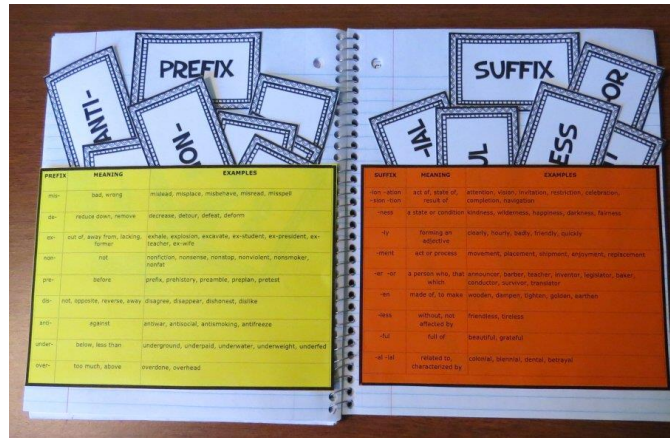 PREFIX
ANTI-
NON-
PREFIX MEANING EXAMPLES
mis- bad, wrong mislead, misplace, misbehave, misread, misspell
de- reduce down, remove decrease, detour, defeat, deform
ex- out of, away from, lacking, former exhale, explosion, excavate, ex-student, ex-president, ex-teacher, ex-wife
non- not nonfiction, nonsense, nonstop, nonviolent, nonsmoker, nonfat
pre- before prefix, prehistory, preamble, preplan, pretest
dis- not, opposite, reverse, away disagree, disappear, dishonest, dislike
anti- against antiwar, antisocial, antismoking, antifreeze
under- below, less than underground, underpaid, underwater, underweight, underfed
over- too much, above overdone, overhead
SUFFIX
-IAL
UL
ESS
OR
SUFFIX MEANING EXAMPLES
-ion -ation -sion -tion act of, state of, result of attention, vision, invitation, restriction, celebration, completion, navigation
-ness a state or condition kindness, wilderness, happiness, darkness, fairness
-ly forming an adjective clearly, hourly, badly, friendly, quickly
-ment act or process movement, placement, shipment, enjoyment, replacement
-er -or a person who, that which announcer, barber, teacher, inventor, legislator, baker, conductor, survivor, translator
-en made of, to make wooden, dampen, tighten, golden, earthen
-less without, not affected by friendless, tireless
-ful full of beautiful, grateful
-al -ial related to, characterized by colonial, biennial, dental, betrayal